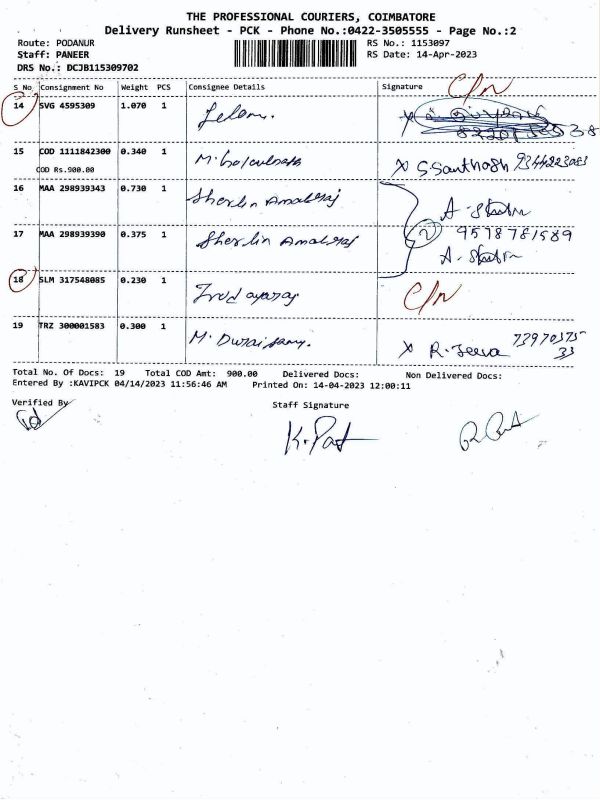 THE PROFESSIONAL COURIERS, COIMBATORE
Delivery Runsheet - PCK - Phone No.:0422-3505555 - Page No.:2
Route: PODANUR RS No.: 1153097
Staff: PANEER RS Date: 14-Apr-2023
DRS No.: DCJB115309702
S No Consignment No Weight PCS Consignee Details Signature
C/N
14 SVG 4595309 1.070 1
15 COD 1111842300 0.340 1 M. X S Santhosh 9344223083
COD Rs.900.00
16 MAA 298939343 0.730 1 Sherlin Amalraj A.
2 9578781589
17 MAA 298939390 0.375 1 Sherlin Amalraj A.
18 SLM 317548085 0.230 1 C/N
19 TRZ 300001583 0.300 1 M. Duraisamy. X R. Jeeva 73970375
33
Total No. Of Docs: 19 Total COD Amt: 900.00 Delivered Docs: Non Delivered Docs:
Entered By :KAVIPCK 04/14/2023 11:56:46 AM Printed On: 14-04-2023 12:00:11
Verified By Staff Signature